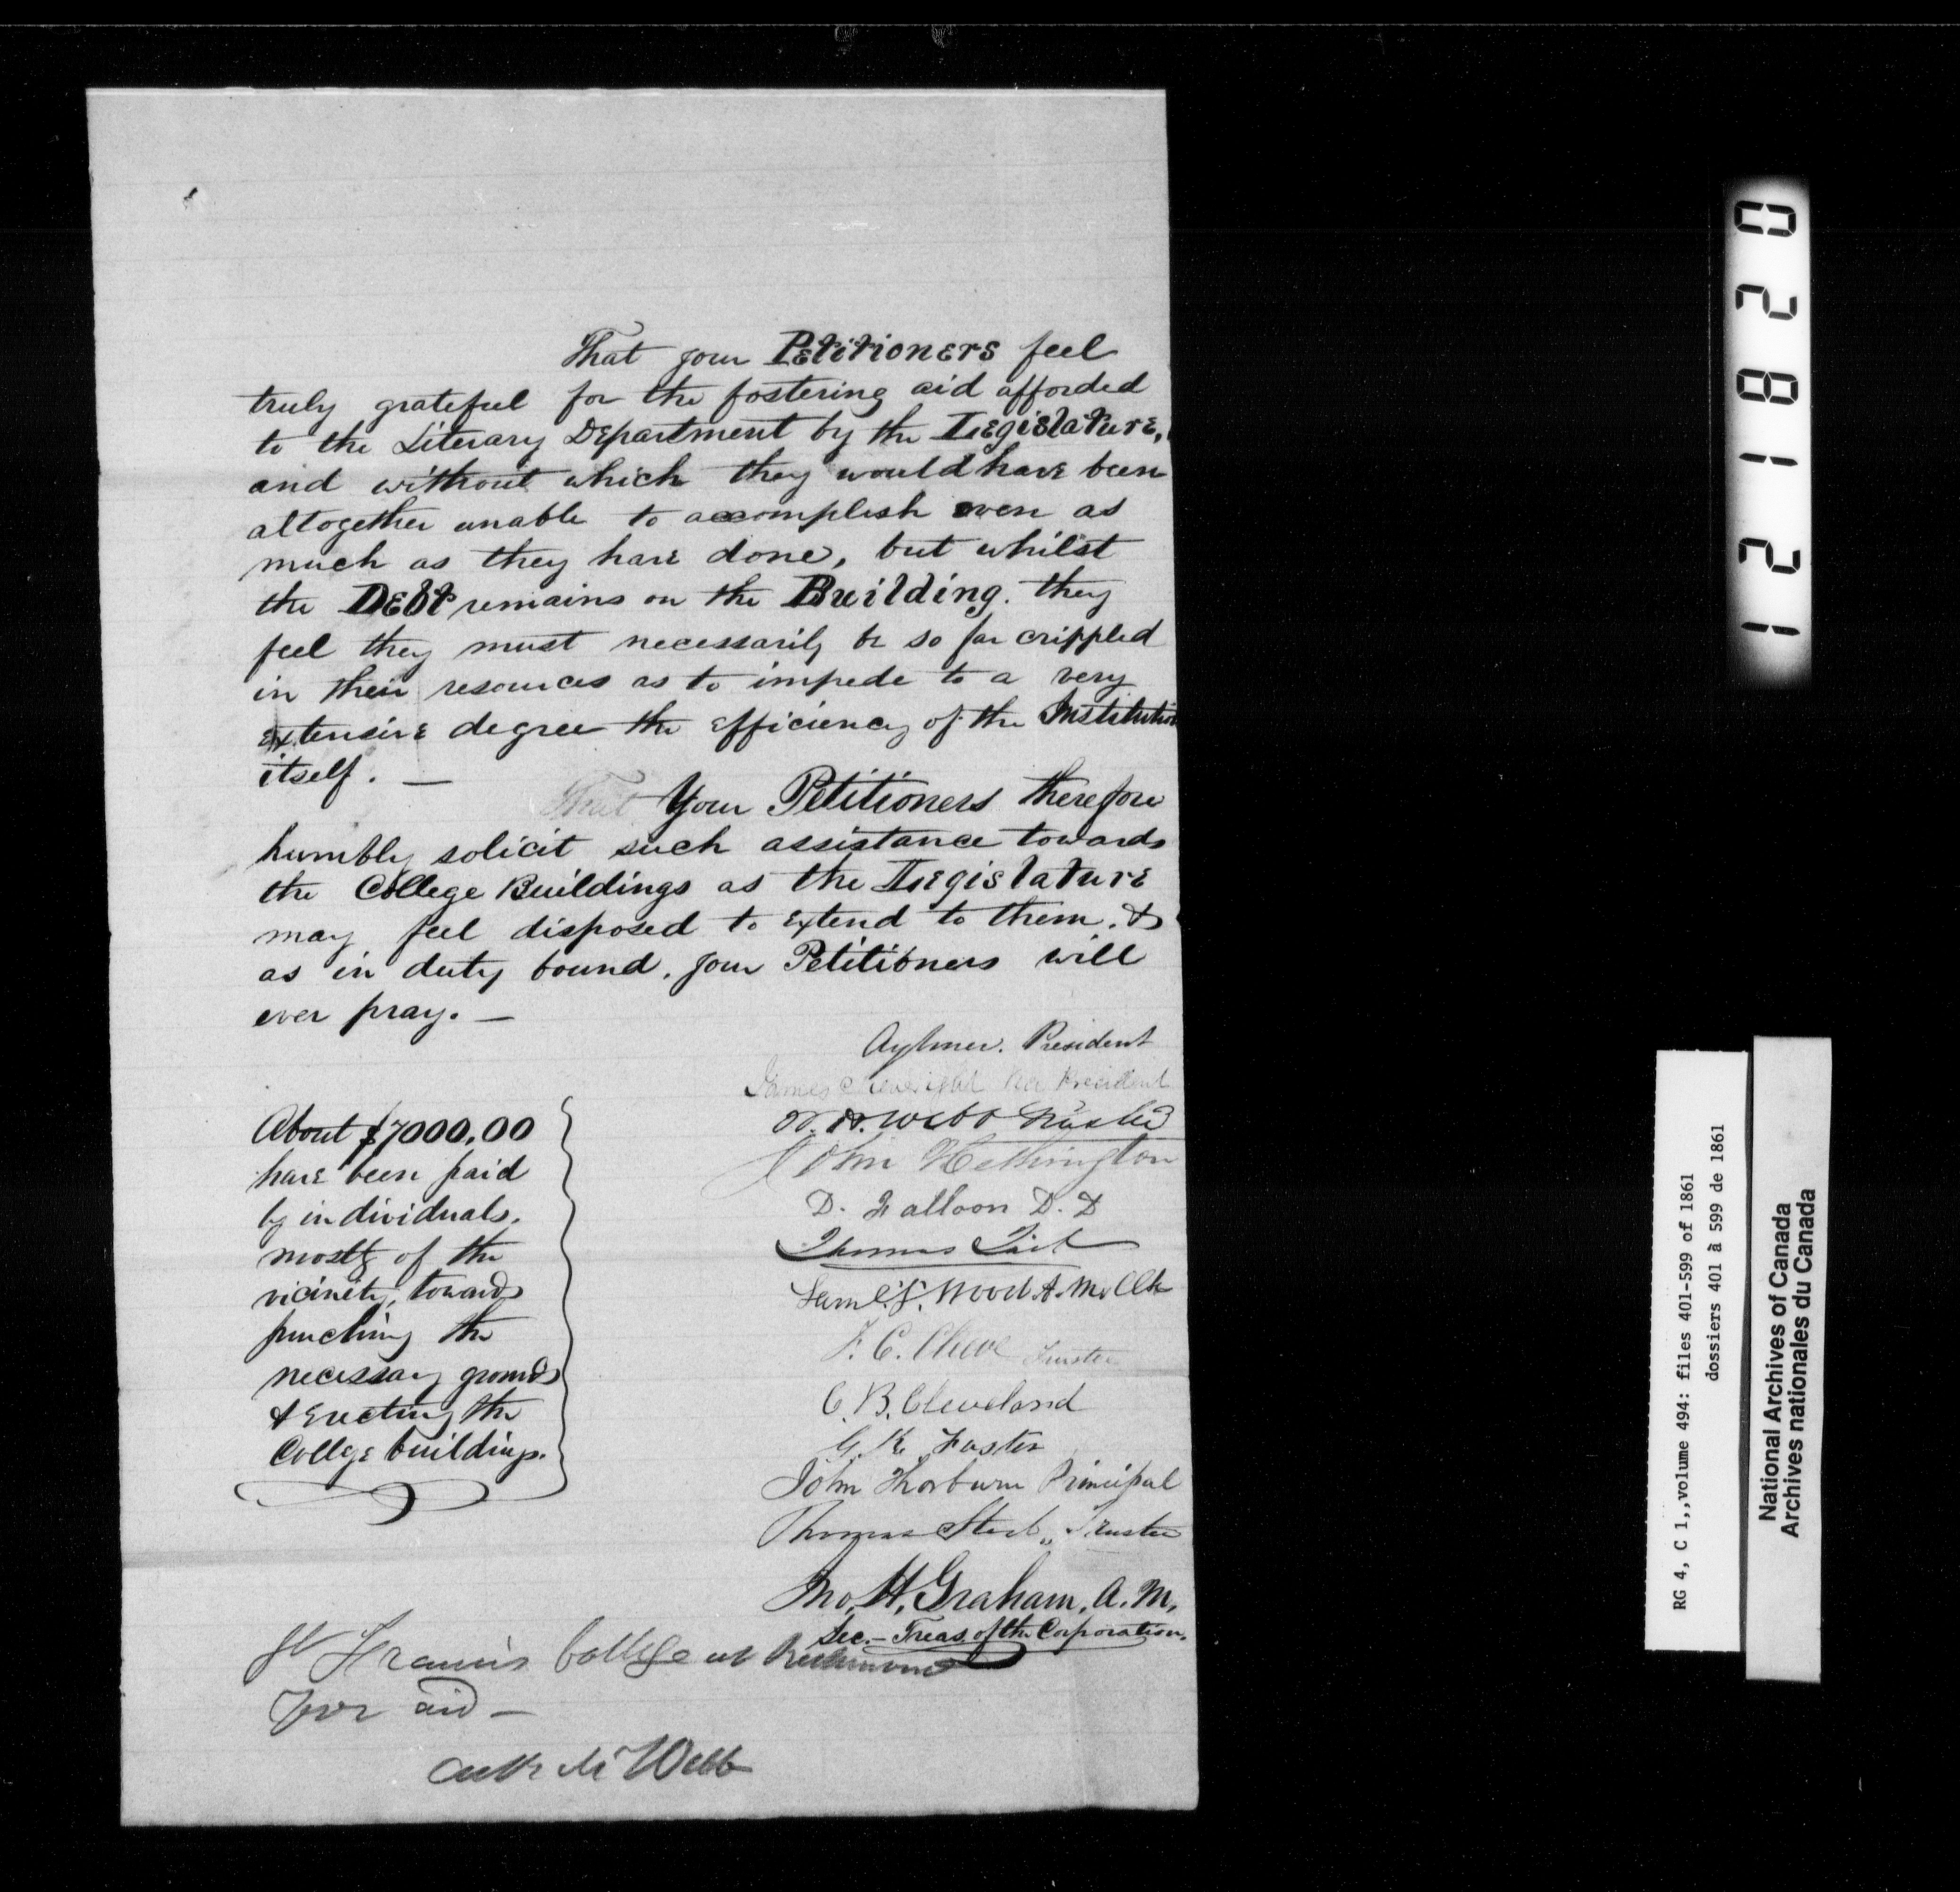 That your Petitioners feel
truly grateful for the fostering aid afforded
to the Literary Department by the Legislature,
and without which they would have been
altogether unable to accomplish even as
much as they have done, but whilst
the Debt remains on the Building. they
feel they must necessarily be so far crippled
in their resources as to impede to a very
extensive degree the efficiency of the Institution
itself. —
That Your Petitioners therefore
humbly solicit such assistance towards
the College Buildings as the Legislature
may feel disposed to extend to them. &
as in duty bound. your Petitioners will
ever pray. —
Aylmer. President
James President
Webb Trustee
John Hethrington
D. Falloon D.D
Thomas Tait
Saml. J. Wood A.M.
F. C. Cleve Trustee
C. B. Cleveland
G. K. Foster
John Thorburn Principal
Thomas Trustee
Jno. H. Graham, A. M,
Sec.-Treas. of the Corporation.
About $7000,00
have been paid
by individuals,
mostly of the
vicinity, towards
purching the
necessary grounds
& Erecting the
College buildings.
St Francis College at Richmond
for aid —
Webb
0281121
RG 4, C 1,,volume 494: files 401-599 of 1861
dossiers 401 à 599 de 1861
National Archives of Canada
Archives nationales du Canada